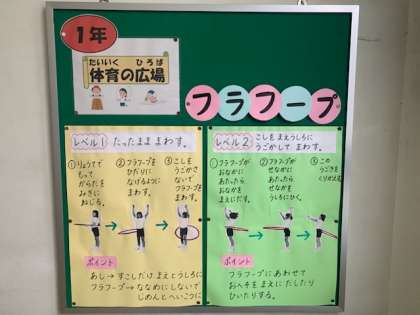 1年
たいいく ひろば
体育の広場
フラフープ
レベル1 たったまままわす。
①りょうてで
もって
からだを
みぎに
ねじる。
②フラフープを
ひだりに
なげるように
まわす。
③こしを
うごかさ
ないで
フラフープを
まわす。
ポイント
あし→すこしだけまえとうしろに
フラフープ→ななめにしないで
じめんとへいこうに
レベル2 こしをまえうしろに
うごかしてまわす。
①フラフープが
おなかに
あたったら
おなかを
まえにだす。
②フラフープが
せなかに
あたったら
せなかを
うしろにひく。
③この
うごきを
くりかえす
ポイント
フラフープにあわせて
おへそをまえにだしたり
ひいたりする。